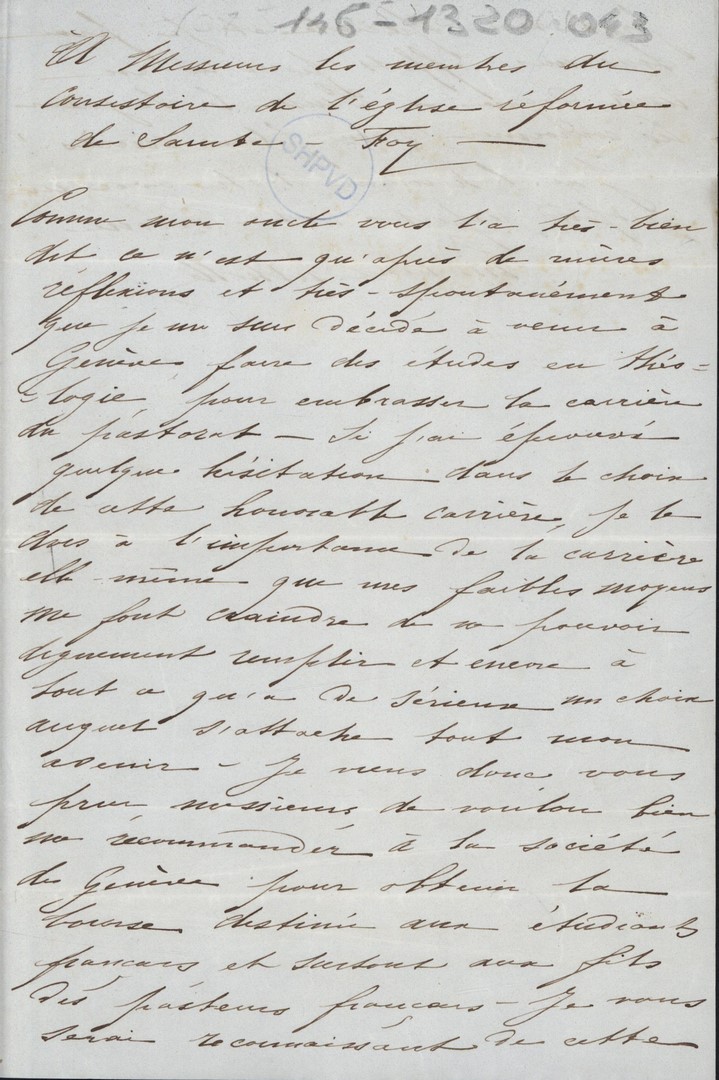 146-1320 043
A Messieurs les membres du
Consistoire de l'église réformée
de Sainte-Foy
SHPVD
Comme mon oncle vous l'a très-bien
dit ce n'est qu'après de mûres
réflexions et très-spontanément
que je me suis décidé à venir à
Genève faire des études en théo=
=logie, pour embrasser la carrière
du pastorat – Si j'ai éprouvé
quelque hésitation dans le choix
de cette honorable carrière, je le
dois à l'importance de la carrière
elle-même que mes faibles moyens
me font craindre de ne pouvoir
dignement remplir et encore à
tout ce qu'a de sérieux un choix
auquel s'attache tout mon
avenir – Je viens donc vous
prier messieurs de vouloir bien
me récommander à la société
de Genève pour obtenir la
bourse destinée aux étudiants
français et surtout aux fils
des pasteurs français – Je vous
serai reconnaissant de cette